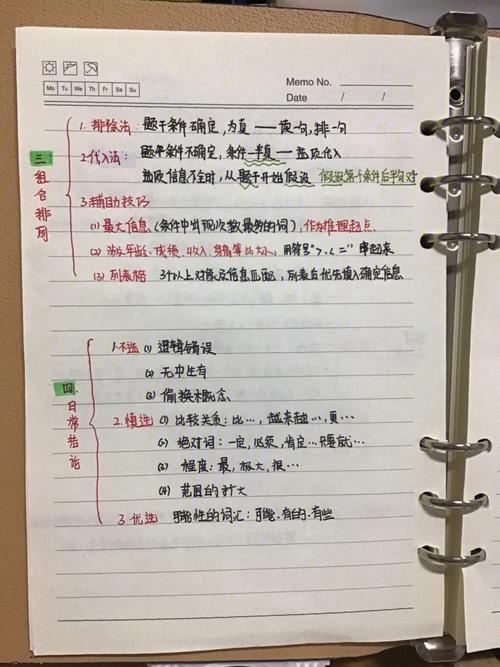 Memo No.
Mo Tu We Th Fr Sa Su
Date / /
三 组合排列
1. 排除法: 题干条件确定, 为真 — 读一句, 排一句
2.代入法: 题干条件不确定, 条件一半真 — 选项代入
选项信息不全时, 从题干开始假设 假设某个条件后半句对
3.辅助技巧
(1) 最大信息 (条件中出现次数最多的词), 作为推理起点.
(2) 涉及年龄、成绩、收入、身高等比大小, 用符号">、<、=" 串起来
(3) 列表格 3个以上对象及信息匹配, 列表后优先填入确定信息
四 日常结论
1.不选 (1) 逻辑错误
(2) 无中生有
(3) 偷换概念、
2.慎选 (1) 比较关系: 比…, 越来越…, 更…
(2) 绝对词: 一定, 必须, 肯定… 只要就…
(3) 程度: 最, 极大, 很…
(4) 范围的扩大
3.优选 可能性的词汇: 可能、有的、有些